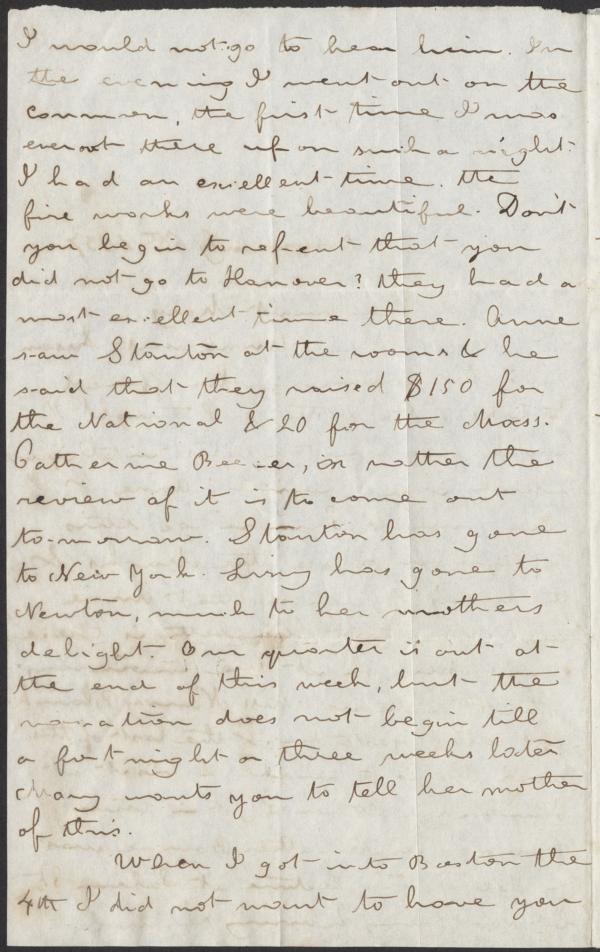 I would not go to hear him. In
the evening I went out on the
common, the first time I was
ever out there upon such a night.
I had an excellent time. the
fire works were beautiful. Don't
you begin to repent that you
did not go to Hanover? they had a
most excellent time there. Anne
saw Stanton at the rooms & he
said that they raised $150 for
the National & 20 for the Mass.
Catherine Beecher, or rather the
review of it is to come out
to-morrow. Stanton has gone
to New York. has gone to
Newton, much to her mothers
delight. Our quarter is out at
the end of this week, but the
vacation does not begin till
a fortnight or three weeks later
Mary wants you to tell her mother
of this.
When I got into Boston the
4th I did not want to have you